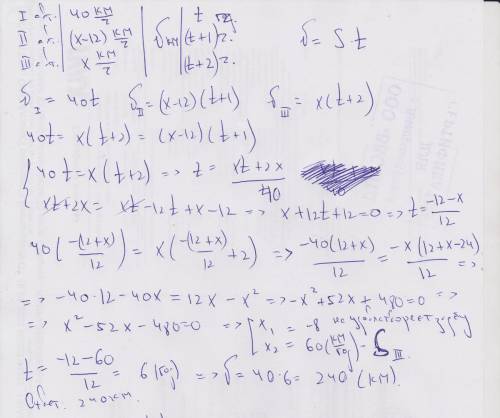 I авт. | 40 км/ч | | t ч.
II авт. | (x-12) км/ч | S км | (t+1) ч.
III авт. | x км/ч | | (t+2) ч.
S_I = 40t S_II = (x-12)(t+1) S_III = x(t+2)
40t = x(t+2) = (x-12)(t+1)
{ 40t = x(t+2) => t = (xt+2x)/40
xt+2x = xt-12t+x-12 => x+12t+12=0 => t = (-12-x)/12
40(-(12+x)/12) = x(-(12+x)/12 + 2) => -40(12+x)/12 = -x(12+x-24)/12 =>
=> -40·12-40x = 12x-x² => -x²+52x+480=0 =>
=> x²-52x-480=0 => [ x₁ = -8 не удовлетворяет
x₂ = 60 (км/)- III
t = (-12-60)/12 = 6 => S = 40·6 = 240 (км).
Ответ. 240 км.